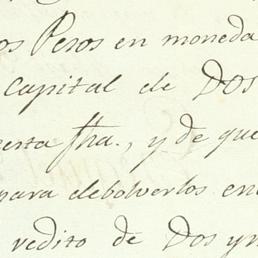 os Pesos en moneda
capital de Dos
esta fha., y de que
para debolverlos en
redito de Dos y m